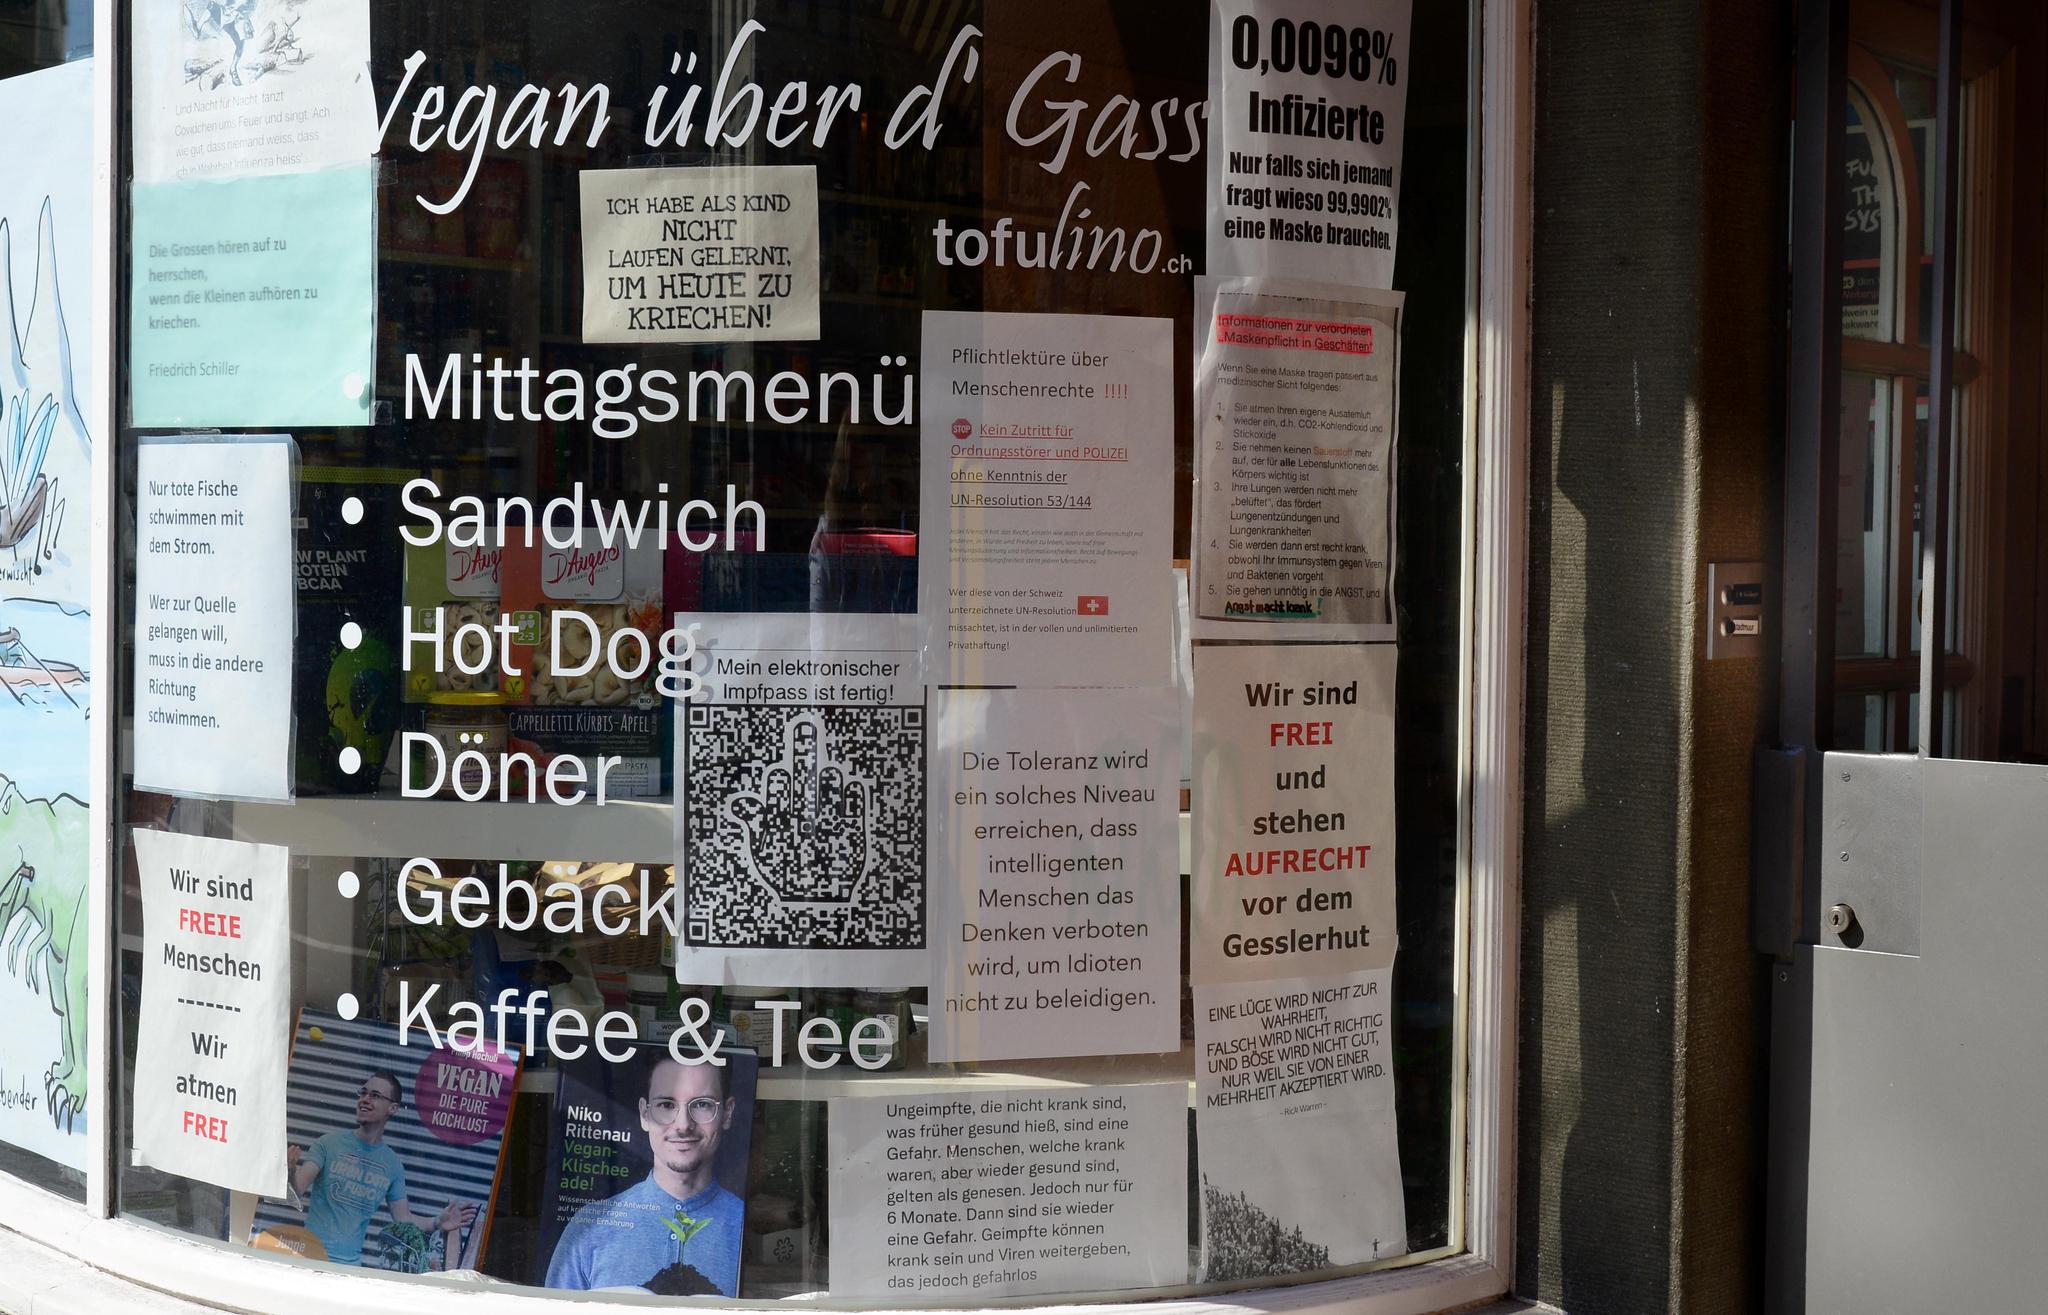 Und Nacht für Nacht, tanzt
Covidchen ums Feuer und singt: Ach
wie gut, dass niemand weiss, dass
ich in Wahrheit Influenza heiss'
Die Grossen hören auf zu
herrschen,
wenn die Kleinen aufhören zu
kriechen.
Friedrich Schiller
Nur tote Fische
schwimmen mit
dem Strom.
Wer zur Quelle
gelangen will,
muss in die andere
Richtung
schwimmen.
Wir sind
FREIE
Menschen
-------
Wir
atmen
FREI
Vegan über d' Gass
tofulino.ch
ICH HABE ALS KIND
NICHT
LAUFEN GELERNT,
UM HEUTE ZU
KRIECHEN!
• Mittagsmenü
• Sandwich
• Hot Dog
• Döner
• Gebäck
• Kaffee & Tee
PLANT
PROTEIN
BCAA
D'Angelo
2-3
BIO
CAPPELLETTI KÜRBIS-APFEL
PASTA
Mein elektronischer
Impfpass ist fertig!
Philip Hochuli
VEGAN
DIE PURE
KOCHLUST
Junge
Niko
Rittenau
Vegan-
Klischee
ade!
Wissenschaftliche Antworten
auf kritische Fragen
zu veganer Ernährung
Pflichtlektüre über
Menschenrechte !!!!
STOP Kein Zutritt für
Ordnungsstörer und POLIZEI
ohne Kenntnis der
UN-Resolution 53/144
Jeder Mensch hat das Recht, einzeln wie auch in der Gemeinschaft mit
anderen, in Würde und Freiheit zu leben, sowie auf freie
Meinungsäusserung und Informationsfreiheit. Recht auf Bewegungs-
und Versammlungsfreiheit steht jedem Menschen zu.
Wer diese von der Schweiz
unterzeichnete UN-Resolution
missachtet, ist in der vollen und unlimitierten
Privathaftung!
Die Toleranz wird
ein solches Niveau
erreichen, dass
intelligenten
Menschen das
Denken verboten
wird, um Idioten
nicht zu beleidigen.
Ungeimpfte, die nicht krank sind,
was früher gesund hieß, sind eine
Gefahr. Menschen, welche krank
waren, aber wieder gesund sind,
gelten als genesen. Jedoch nur für
6 Monate. Dann sind sie wieder
eine Gefahr. Geimpfte können
krank sein und Viren weitergeben,
das jedoch gefahrlos
0,0098%
Infizierte
Nur falls sich jemand
fragt wieso 99,9902%
eine Maske brauchen.
Informationen zur verordneten
„Maskenpflicht in Geschäften"
Wenn Sie eine Maske tragen passiert aus
medizinischer Sicht folgendes:
1. Sie atmen Ihren eigene Ausatemluft
wieder ein, d.h. CO2-Kohlendioxid und
Stickoxide
2. Sie nehmen keinen Sauerstoff mehr
auf, der für alle Lebensfunktionen des
Körpers wichtig ist
3. Ihre Lungen werden nicht mehr
„belüftet", das fördert
Lungenentzündungen und
Lungenkrankheiten
4. Sie werden dann erst recht krank,
obwohl Ihr Immunsystem gegen Viren
und Bakterien vorgeht
5. Sie gehen unnötig in die ANGST, und
Angst macht krank!
Wir sind
FREI
und
stehen
AUFRECHT
vor dem
Gesslerhut
EINE LÜGE WIRD NICHT ZUR
WAHRHEIT,
FALSCH WIRD NICHT RICHTIG
UND BÖSE WIRD NICHT GUT,
NUR WEIL SIE VON EINER
MEHRHEIT AKZEPTIERT WIRD.
- Rick Warren -